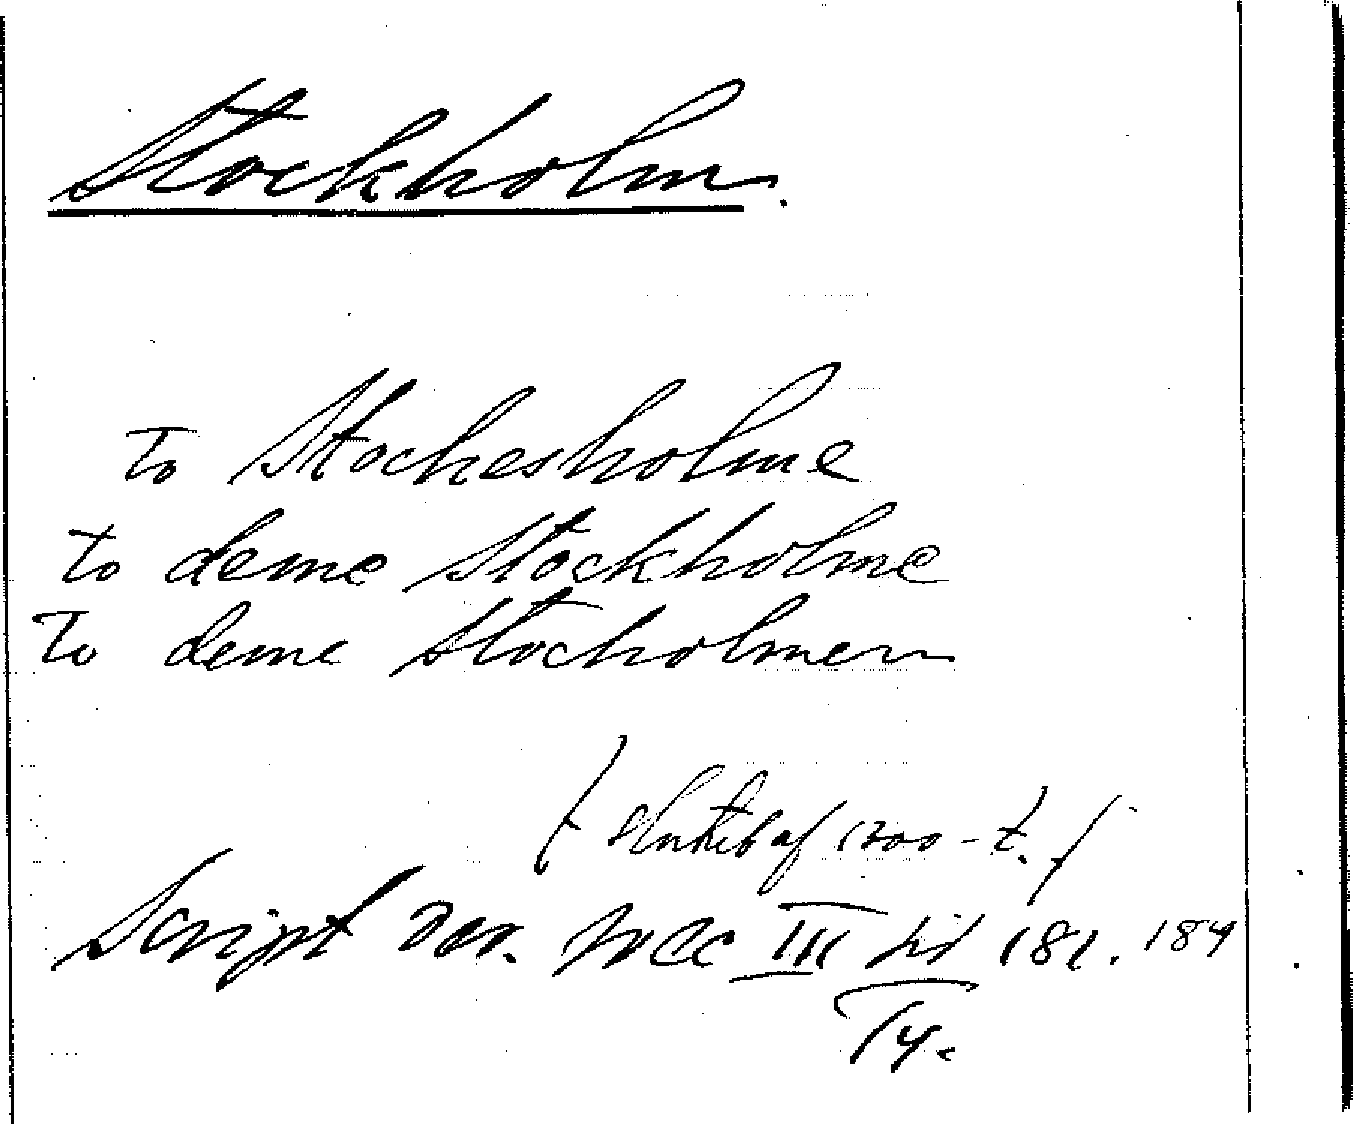 Stockholm.
to Stochesholme
to deme Stockholme
To deme Stocholmen
(slutet af 1200-t.)
Script rer. svec III sid 181. 184
Ty.